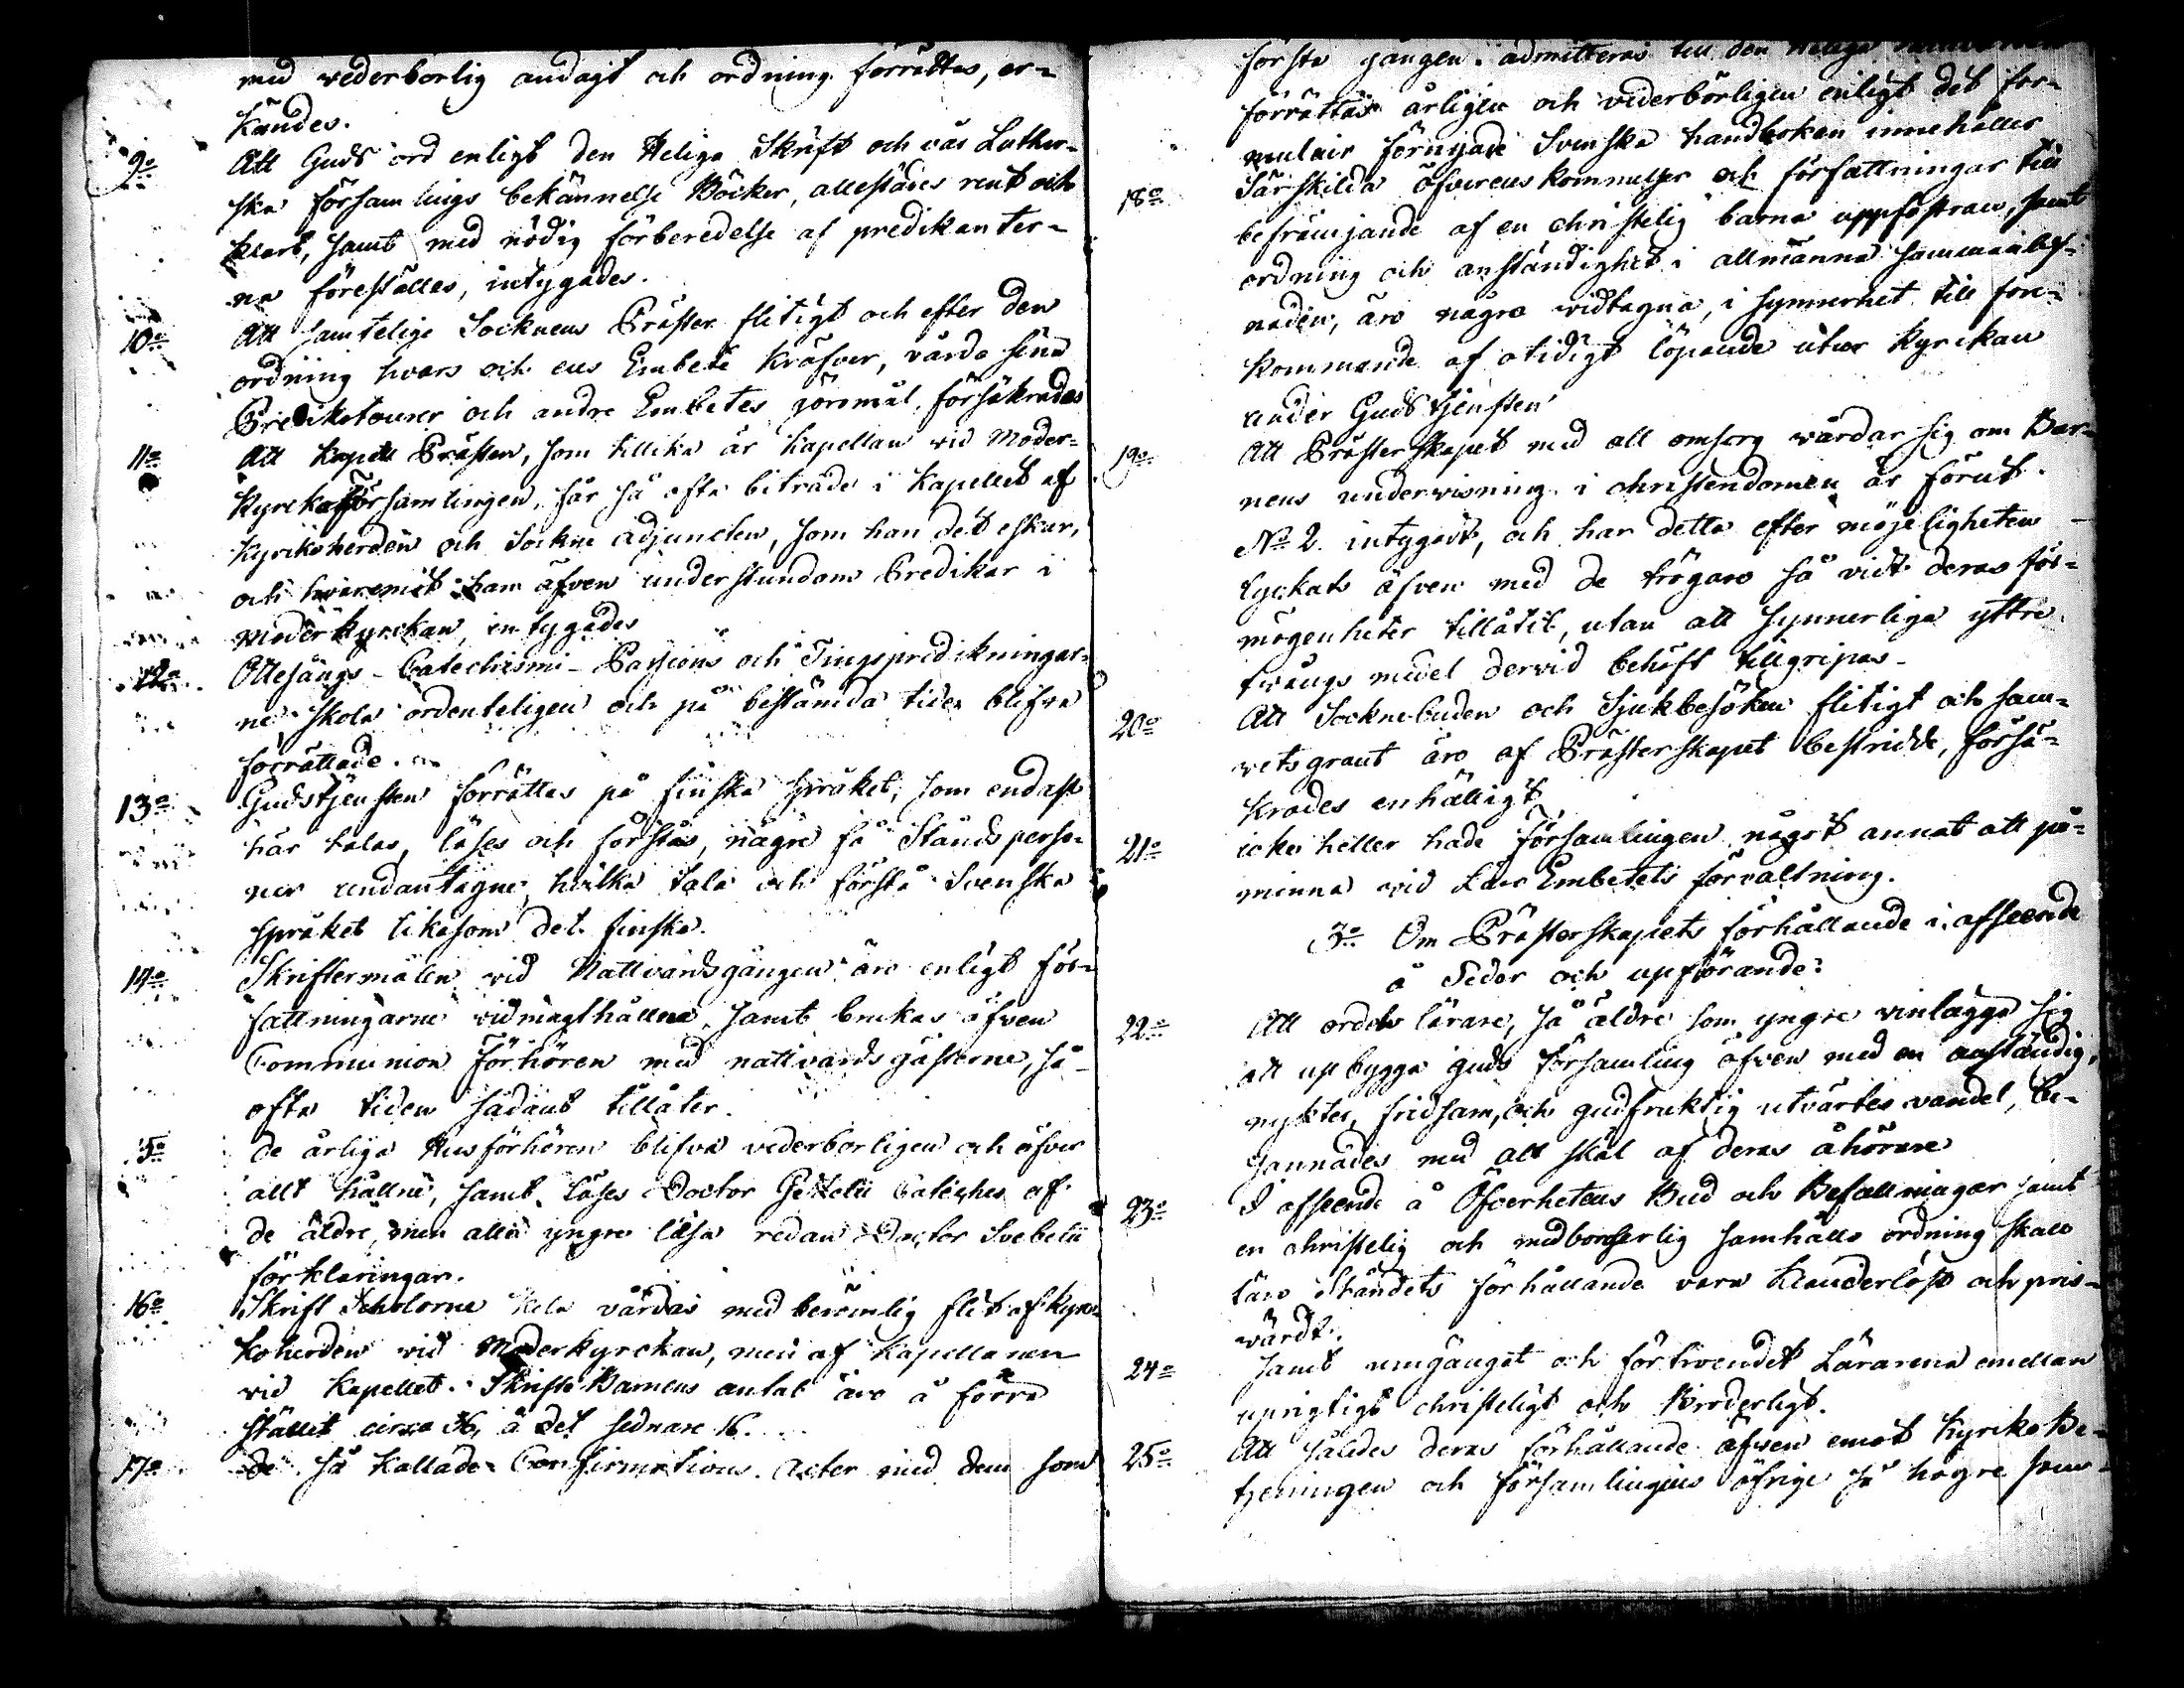 med vederbörlig andagt och ordning förrättas, er-
kändes.
9o Att Guds ord enligt den Heliga Skrift och vår Luther-
ska församlings bekännelse Böcker, allestädes rent och
klart, samt med nödig förberedelse af predikanter-
na föreställes, intygades.
10o Att samtelige Socknens Präster flitigt och efter den
ordning hvars och ens Embete kräfver, vårda sina
Predikoturer och andra Embetes göromål, försäkrades
11o Att Kapell Prästen, som tillika är Kapellan vid Moder-
kyrkoförsamlingen, får så ofta biträde i Kapellet af
Kyrkoherden och Sockne adjuncten, som han det eskar,
och hvaremot han äfven understundom Predikar i
Moderkyrckan, intygades
12o Ottesångs- Catechismi- Passions och Tingspredikningar-
ne skola ordenteligen och på bestämda tider blifva
förrättade.
13o Gudstjensten förrättas på finska språket, som endast
här talas, läses och förstås, någre få Ståndsperso-
ner undantagne, hvilka tala och förstå Svenska
språket likasom det finska.
14o Skriftermålen vid Nattvardsgången äro enligt för-
fattningarne vidmagthållna, samt brukas äfven
Communion Förhören med nattvardsgästerne, så
ofta tiden sådant tillåter.
15o De årliga Husförhören blifva vederborligen och öfver
allt hållne, samt läses Doctor Gezelii Cateches af
de äldre, men alla yngre läsa redan Doctor Svebelii
förklaringar.
16o Skrift Scholorne vårdas med berömlig flit af Kyr-
koherden vid Moderkyrckan, men af Kapellanen
vid Kapellet. Skrifte Barnens antal äro å förra
stället circa 36, å det sednare 16.
17o De så kallade Confirmations Acter med dem som
första gången admitteras till den Heliga
förrättas årligen och vederbörligen enligt det for-
mulair förnyade Svenska handboken innehåller
18o Särskilda öfverenskommelser och författningar till
befrämjande af en christelig barna uppfostran, samt
ordning och anständighet i allmänna sammanlef-
naden, äro några vidtagna, i synnerhet till före-
kommande af otidigt löpande utur Kyrckan
under Gudstjensten
19o Att Prästerskapet med all omsorg vårdar sig om Bar-
nens undervisning i christendomen är förut
No 2. intygadt, och har detta efter möjeligheten
lyckats äfven med de trögare så vidt deras för-
mögenheter tillåtit, utan att synnerliga yttre
tvångs medel dervid behöft tillgripas.
20o Att Socknebuden och Sjukbesöken flitigt och sam-
vetsgrant äro af Prästerskapet bestridde, försä-
krades enhälligt
21o icke heller hade Församlingen något annat att på-
minna vid Läro Embetets förvaltning.
3o Om Prästerskapets förhållande i afseende
å Seder och upförande:
22o Att ordets lärare, så äldre som yngre vinlägga sig
att upbygga guds församling äfven med en anständig,
nykter, fridsam, och gudfruktig utvärtes vandel, be-
jannades med allt skäl af deras åhörare
23o I afseende å Öfverhetens Bud och Befallningar samt
en christelig och medborgerlig samhälls ordning skall
läro Ståndets förhållande vara klanderlöst och pris-
värdt.
24o Samt umgänget och förtroendet Lärarena emellan
uprigtigt christeligt och Broderligt.
25o Att således deras förhållande äfven emot Kyrko Be-
tjeningen och församlingens öfrige så högre som